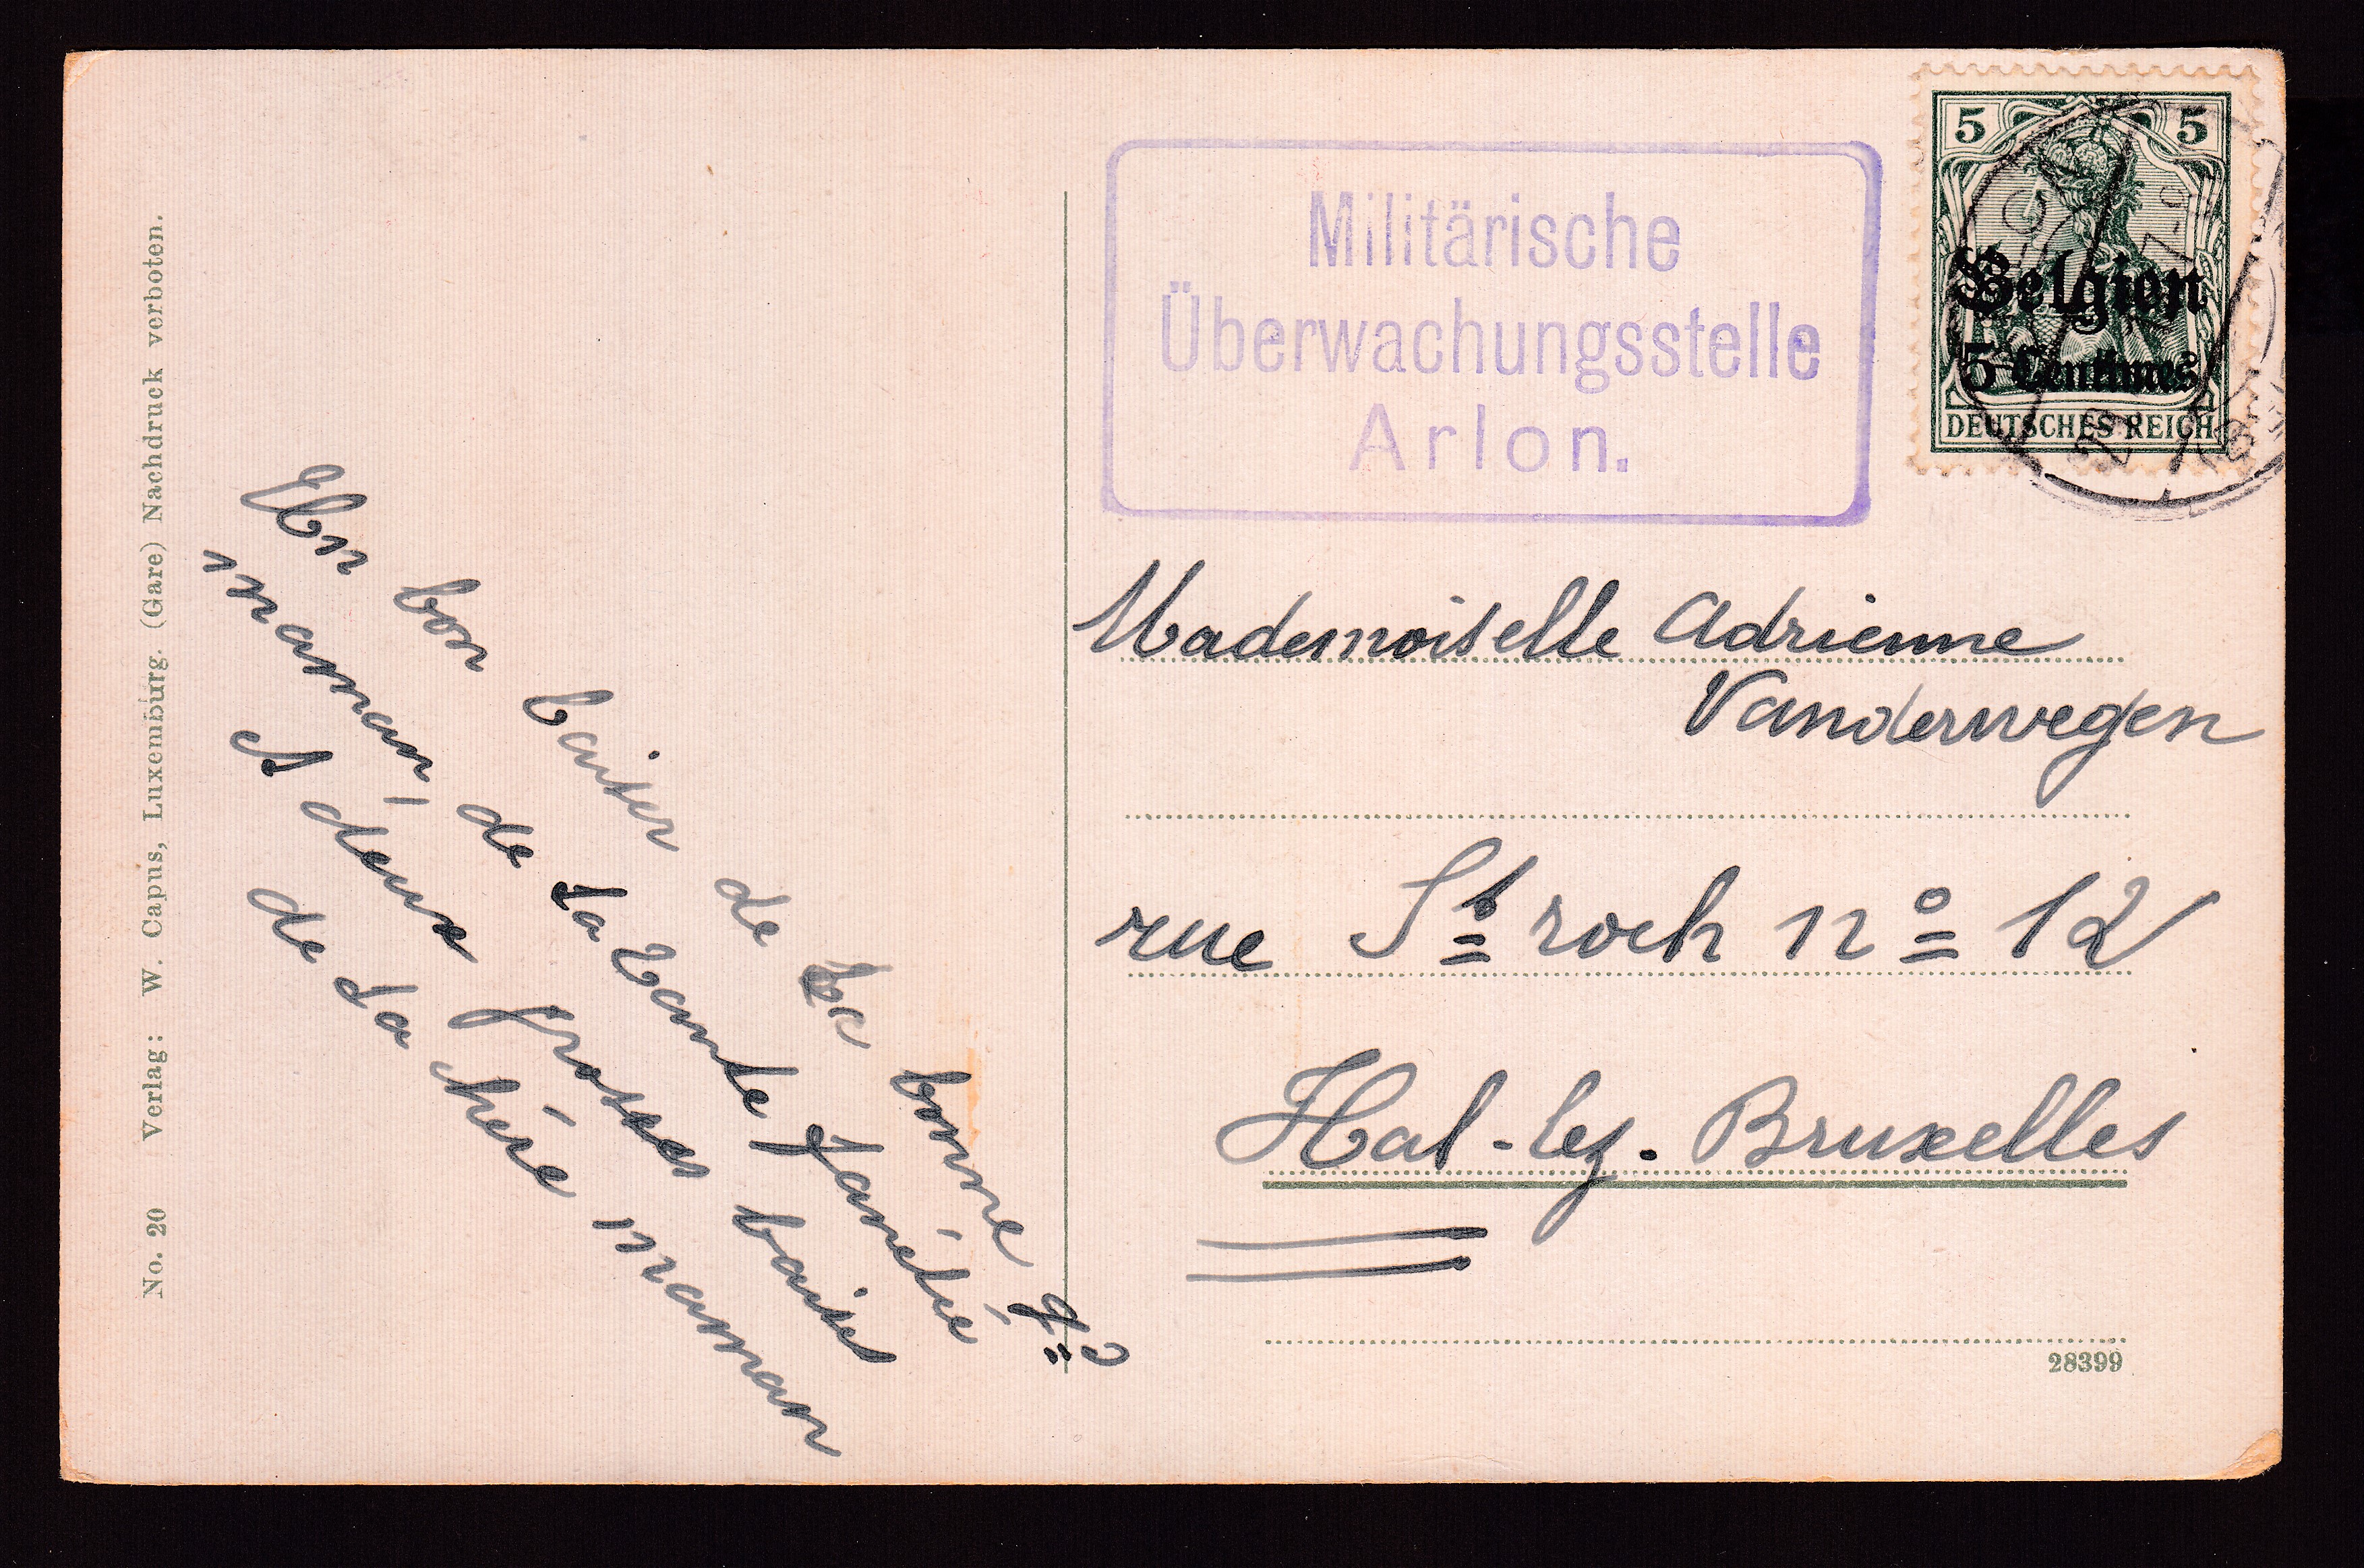 No. 20 Verlag: W. Capus, Luxemburg. (Gare) Nachdruck verboten.
Un bon baiser de bonne
maman, de ta tante Janetie
A deux grosses baises
de ta chère maman
Militärische
Überwachungsstelle
Arlon.
5 5
Belgien
5 Centimes
DEUTSCHES REICH
Mademoiselle Adrienne
Vanderwegen
rue St roch no 12
Hal-lez. Bruxelles
28399